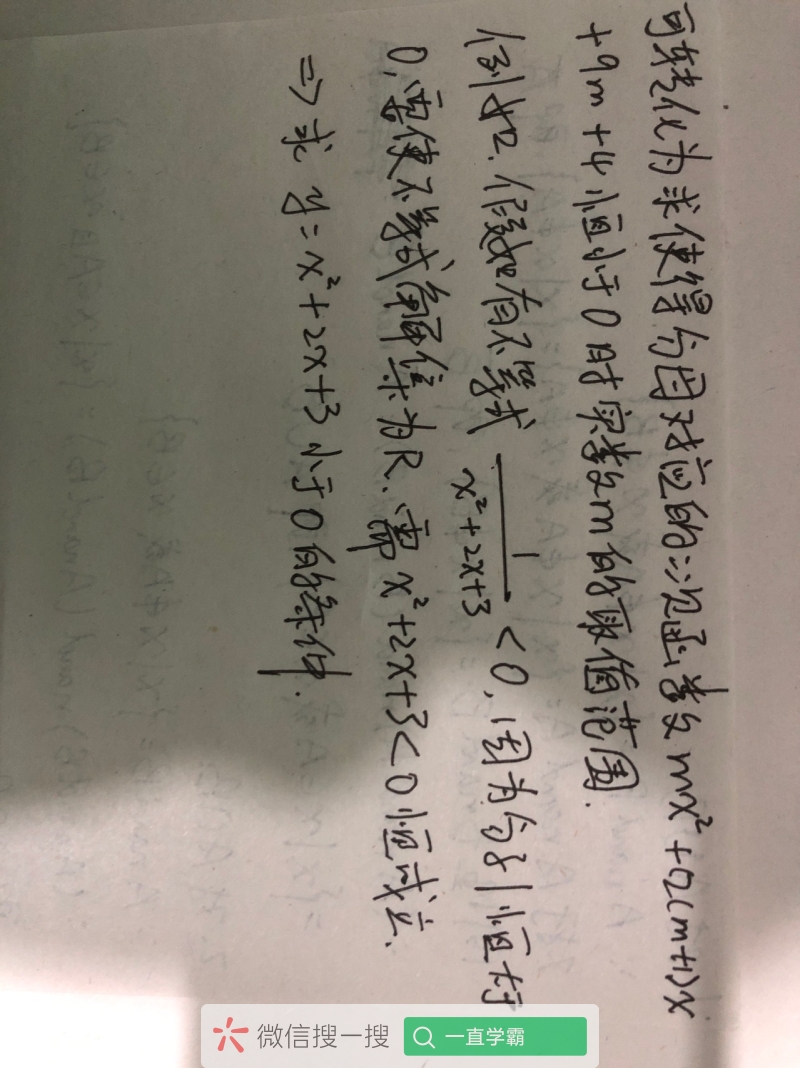 可转化为求使得分母对应的二次函数mx²+2(m+1)x
+9m+4恒小于0时实数m的取值范围.
例如.假如有不等式 1/(x²+2x+3) <0,因为分子1恒大于
0,要使不等式解集为R、需x²+2x+3<0恒成立.
⇒求 y=x²+2x+3小于0的条件.
微信搜一搜
一直学霸